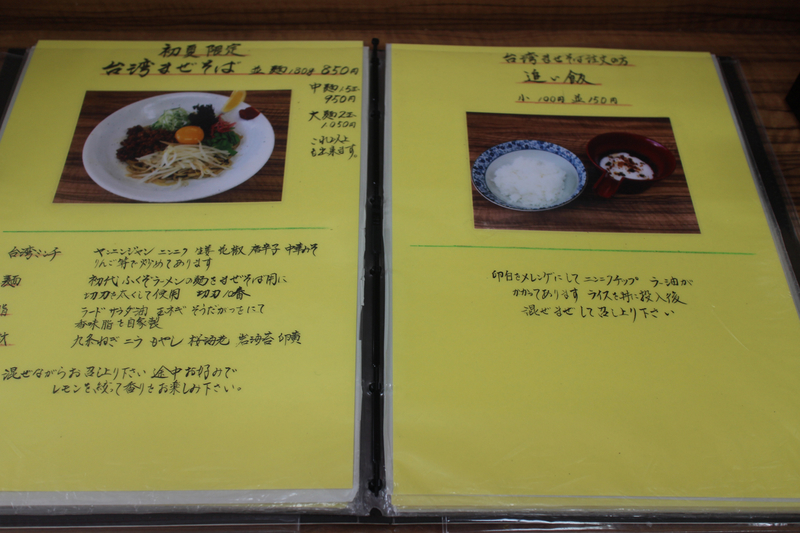 初夏限定
台湾まぜそば 並麺 180g 850円
中麺 1.5玉
950円
大麺 2玉
1,050円
これ以上
も出来ます。
台湾ミンチ ヤンニンジャン ニンニク 生姜 花椒 唐辛子 中華みそ
りんご等で炒めてあります
麺 初代ふくぞラーメンの麺をまぜそば用に
切刃を太くして使用 切刃10番
ラード サラダ油 玉ネギ そうだかつをにて
香味脂を自家製
九条ねぎ ニラ もやし 桜海老 岩海苔 卵黄
混ぜながらお召し上り下さい 途中お好みで
レモンを絞って香りをお楽しみ下さい。
台湾まぜそば注文の方
追い飯
小 100円 並 150円
卵白をメレンゲにして ニンニクチップ ラー油が
かかってあります ライスを丼に投入後
混ぜまぜして召し上り下さい